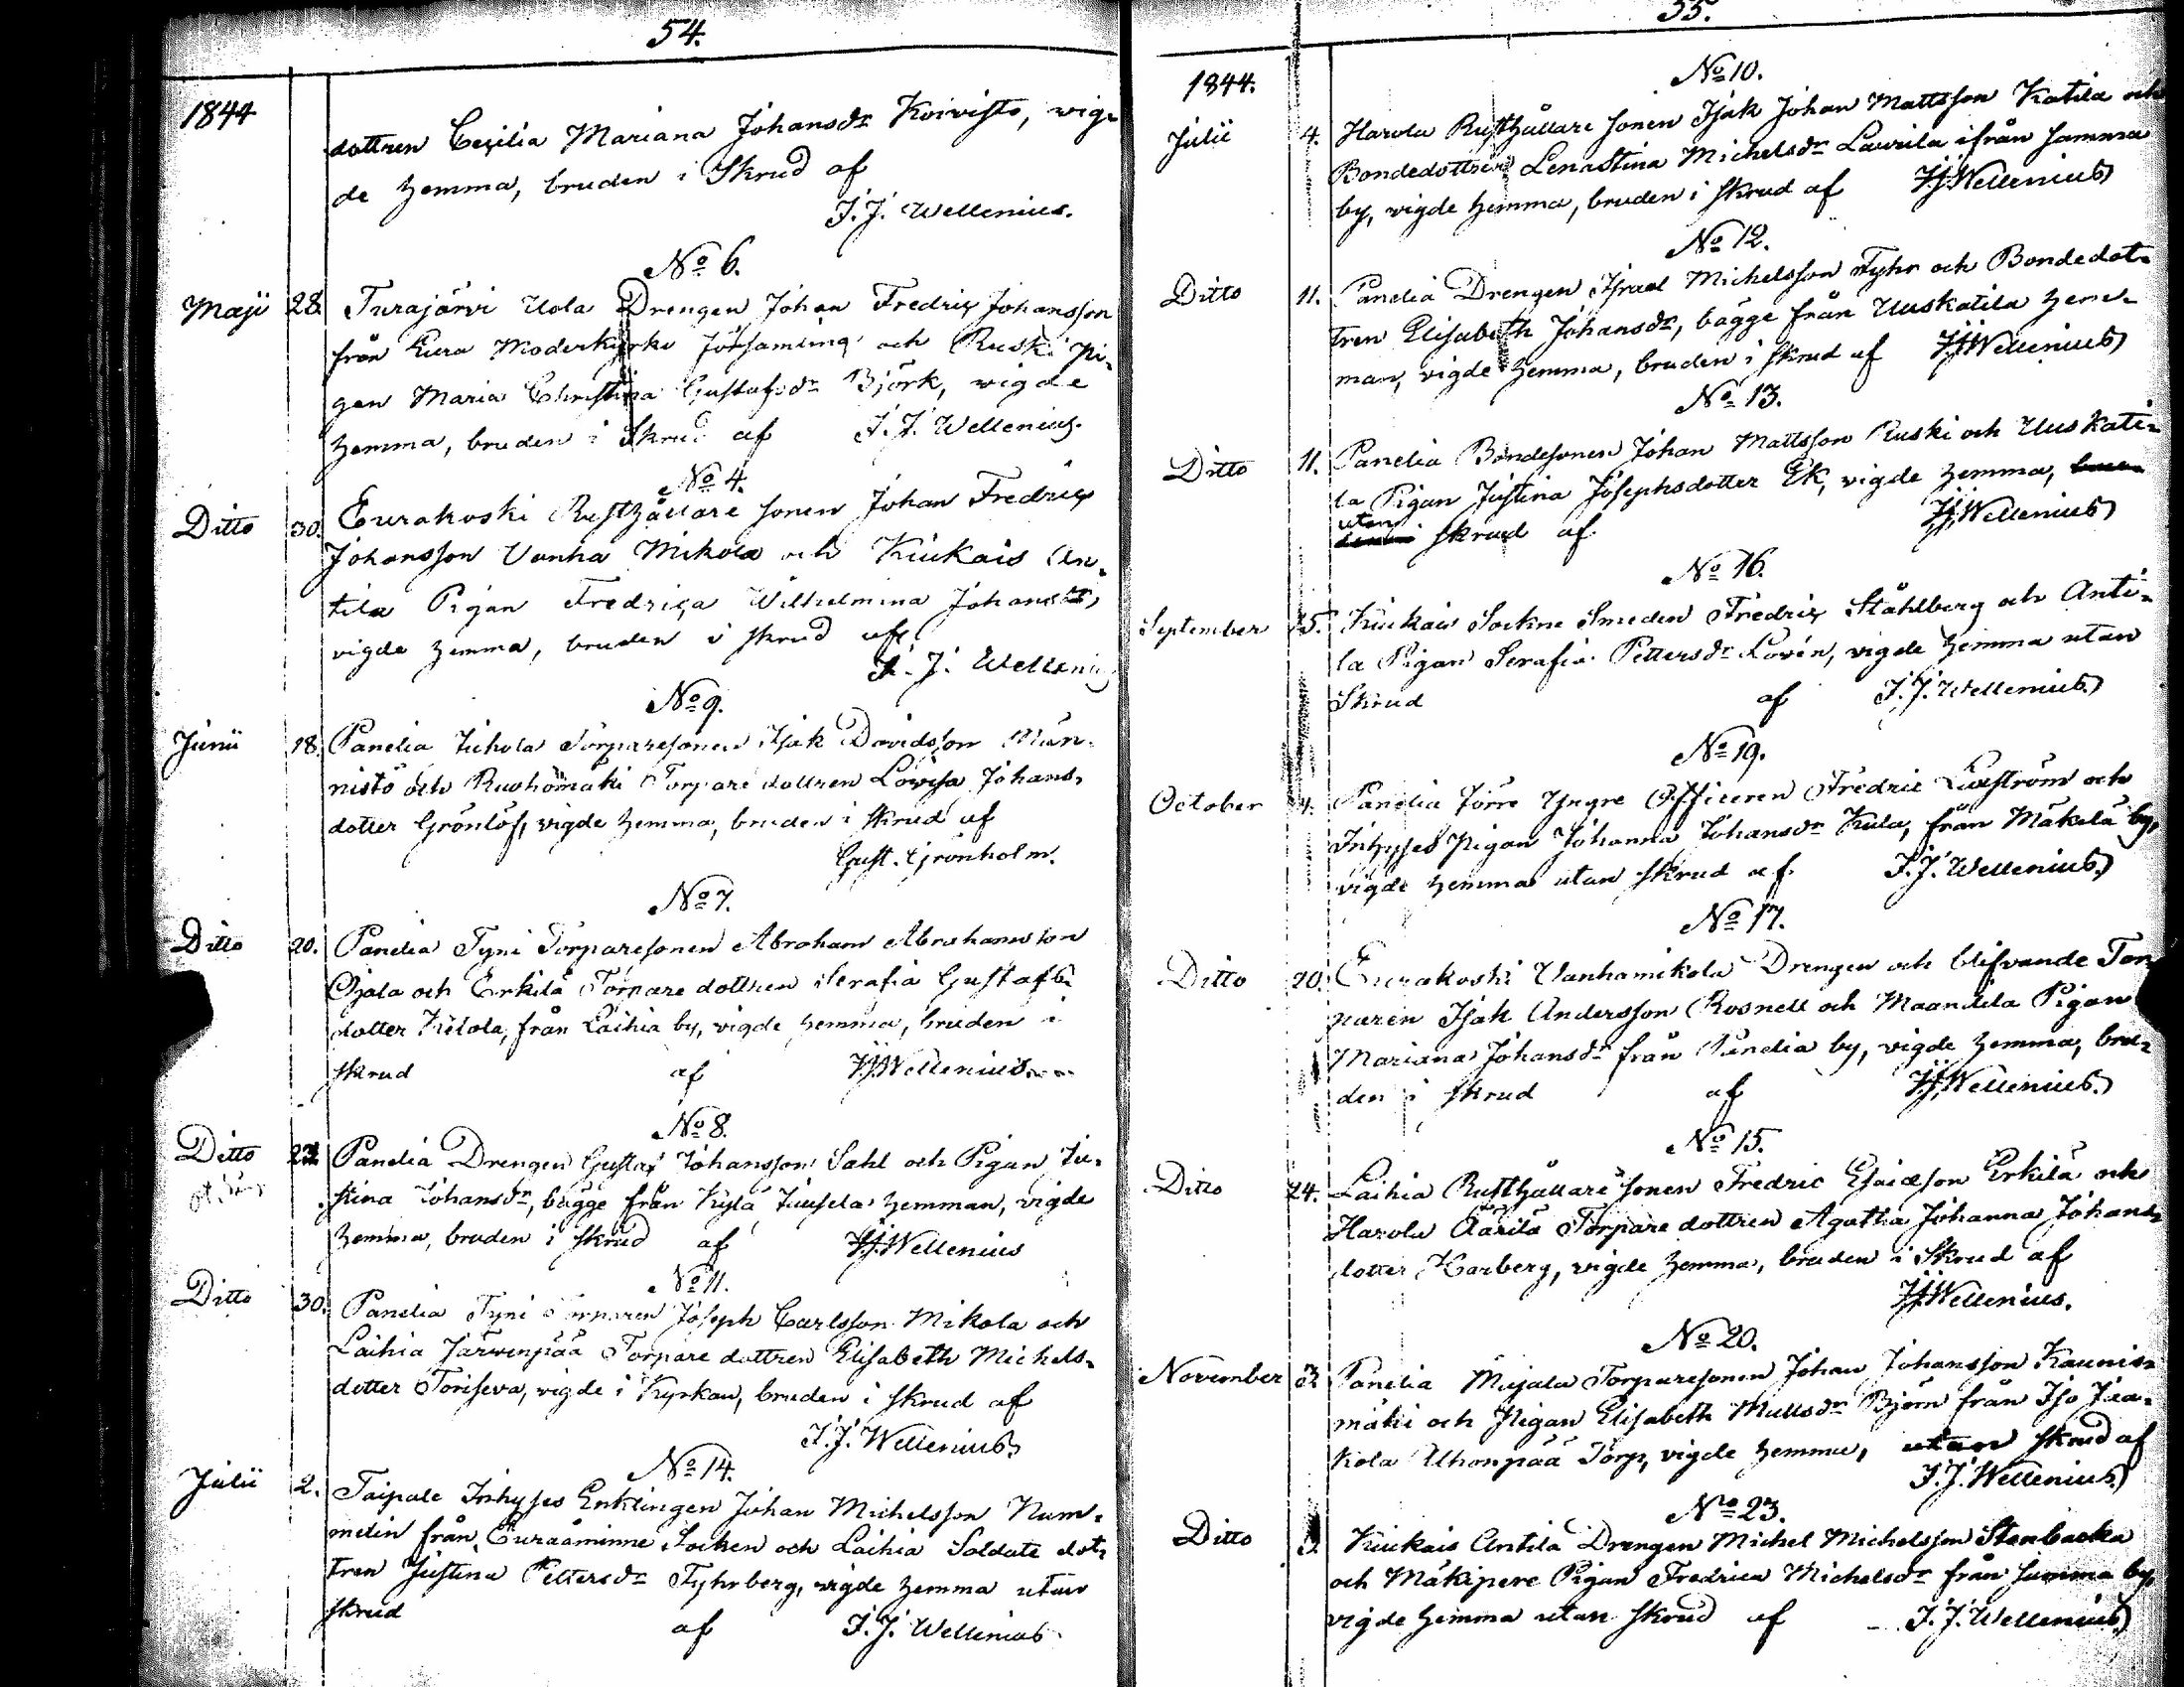 54.
1844
dottren Cecilia Mariana Johansdr Koivisto, vig-
de hemma, bruden i Skrud af
J. J. Wellenius.
No 6.
Maji 28. Turajärvi Uola Drengen Johan Fredric Johansson
från Eura Moderkyrko församling och Ruski Pi-
gan Maria Christina Gustafsdr Björk, vigde
hemma, bruden i Skrud af J. J. Wellenius.
No 4.
Ditto 30. Eurakoski Rusthållare sonen Johan Fredric
Johansson Vanha Mikola och Kiukais An-
tila Pigan Fredrica Wilhelmina Johansdr,
vigde hemma, bruden i skrud af
J. J. Wellenius
No 9.
Junii 18. Panelia Tuhola Torparesonen Isak Davidsson Män-
nistö och Ruohomäki Torpare dottren Lovisa Johans-
dotter Grönlöf, vigde hemma, bruden i skrud af
Gust. Grönholm.
No 7.
Ditto 20. Panelia Tyni Torparesonen Abraham Abrahamsson
Ojala och Erkilä Torpare dottren Serafia Gustafs-
dotter Kitola, från Laihia by, vigde hemma, bruden i
skrud af J. J. Wellenius
No 8.
Ditto 27. Panelia Drengen Gustaf Johansson Sahl och Pigan Ju-
stina Johansdr, bägge från Kylä Juusela hemman, vigde
hemma, bruden i skrud af J. J. Wellenius
No 11.
Ditto 30. Panelia Tyni Torparen Joseph Carlsson Mikola och
Laihia Järvenpää Torpare dottren Elisabeth Michels-
dotter Toriseva, vigde i Kyrkan, bruden i skrud af
J. J. Wellenius
No 14.
Julii 2. Taipale Inhyses Enklingen Johan Michelsson Num-
melin från Euraåminne Socken och Laihia Soldate dot-
tren Justina Pettersdr Fyhrberg, vigde hemma utan
skrud af J. J. Wellenius
55.
1844.
No 10.
Julii 4. Harola Rusthållare sonen Isak Johan Mattsson Katila och
Bondedottren Lenastina Michelsdr Laurila ifrån samma
by, vigde hemma, bruden i skrud af J. J. Wellenius
No 12.
Ditto 11. Panelia Drengen Israel Michelsson Fyhr och Bondedot-
tren Elisabeth Johansdr, bägge från Uuskatila hem-
man, vigde hemma, bruden i skrud af J. J. Wellenius
No 13.
Ditto 11. Panelia Bondesonen Johan Mattsson Ruski och Uuskati-
la Pigan Justina Josephsdotter Ek, vigde hemma,
utan skrud af J. J. Wellenius
No 16.
September 15. Kiukais Sockne Smeden Fredric Ståhlberg och Anti-
la Pigan Serafia Pettersdr Lovén, vigde hemma utan
Skrud af J. J. Wellenius
No 19.
October 4. Panelia Jörre Yngre Officeren Fredric Luxström och
Inhyses Pigan Johanna Johansdr Kula, från Mäkelä by,
vigde hemma utan skrud af J. J. Wellenius
No 17.
Ditto 20. Eurakoski Vanhamikola Drengen och blifvande Tor-
paren Isak Andersson Rosnell och Maandila Pigan
Mariana Johansdr från Panelia by, vigde hemma, bru-
den i skrud af J. J. Wellenius.
No 15.
Ditto 24. Laihia Rusthållare sonen Fredric Esaiasson Erkilä och
Harola Äärilä Torpare dottren Agatha Johanna Johans-
dotter Karberg, vigde hemma, bruden i Skrud af
J. J. Wellenius.
No 20.
November 3. Panelia Mujala Torparesonen Johan Johansson Kaunis-
mäki och Pigan Elisabeth Mattsdr Björn från Iso Jaa-
kola Uhonpää Torp, vigde hemma, utan skrud af
J. J. Wellenius
No 23.
Ditto Kiukais Antila Drengen Michel Michelsson Stenbacka
och Mäkipere Pigan Fredrica Michelsdr från samma by,
vigde hemma utan skrud af J. J. Wellenius